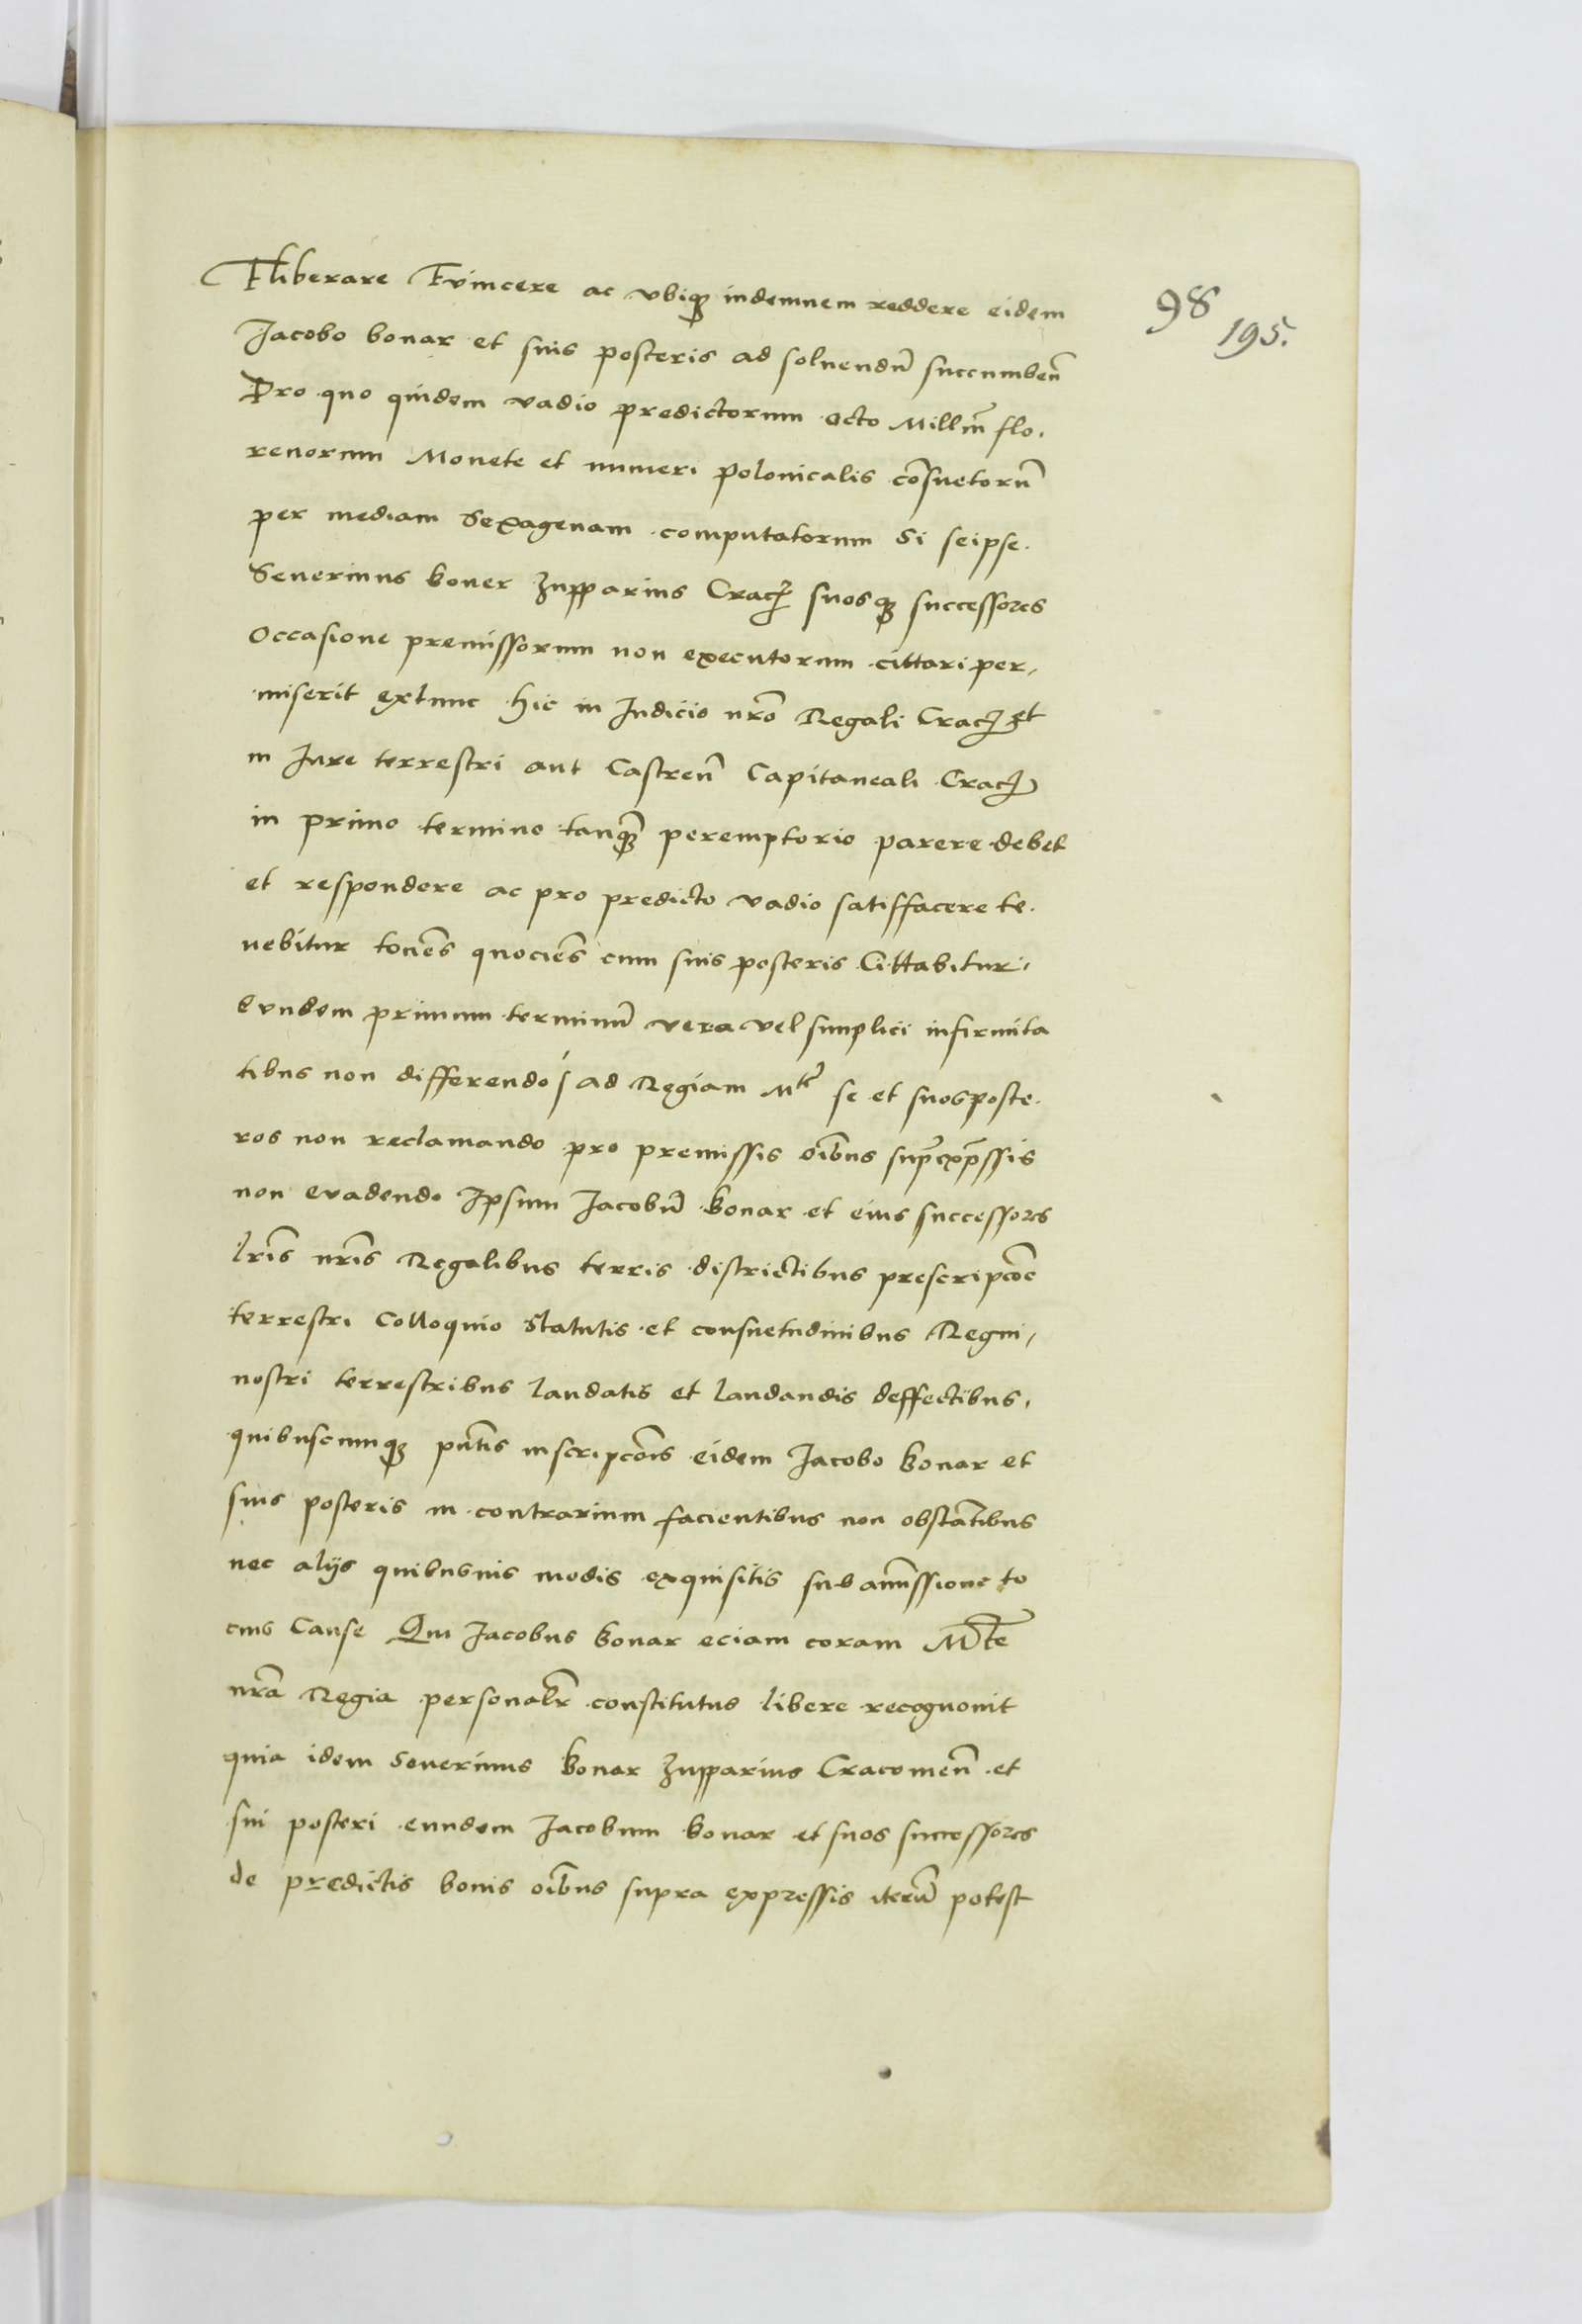 Eliberare Evincere ac vbiq3 indemnem reddere eidem
98
195.
Jacobo bonar et suis posteris ad soluendū succumbeñ
Pro quo quidem vadio predictorum octo Millm̄ flo,
renorum Monete et numeri polonicalis cōsuetorū
per mediam Sexagenam computatorum Si seipse
Seuerinus boner Zupparius Crac̄ suosq3 successores
Occasione premissorum non executorum cittari per,
miserit extunc hic in Judicio nr̄o Regali Crac̄ Et
in Jure terrestri aut Castreñ Capitaneali Crac̄
in primo termino tanq̄3 peremptorio parere debet
et respondere ac pro predicto vadio satisffacere te,
nebitur tociēs quociēs cum suis posteris Cittabitur,
Eundem primum terminū vera vel simplici infirmita
tibus non differendo / ad Regiam Mtē se et suos poste,
ros non reclamando pro premissis oībus sup̄exp̄ssis
non euadendo Ipsum Jacobū bonar et eius successores
lr̄is nr̄is Regalibus terris districtibus prescripc̄oe
terrestri Colloquio Statutis et consuetudinibus Regni,
nostri terrestribus laudatis et laudandis deffectibus,
quibuscumq3 pn̄tis inscripc̄ois eidem Jacobo bonar et
suis posteris in contrarium facientibus non obstātibus
nec alijs quibusuis modis exquisitis sub amīssione to
cius Cause Qui Jacobus bonar eciam coram Mt̄e
nr̄a Regia personalr̄ constitutus libere recognouit
quia idem Seuerinus bonar Zupparius Cracouieñ et
sui posteri eundem Jacobum bonar et suos successores
de predictis bonis oībus supra expressis iterū potest